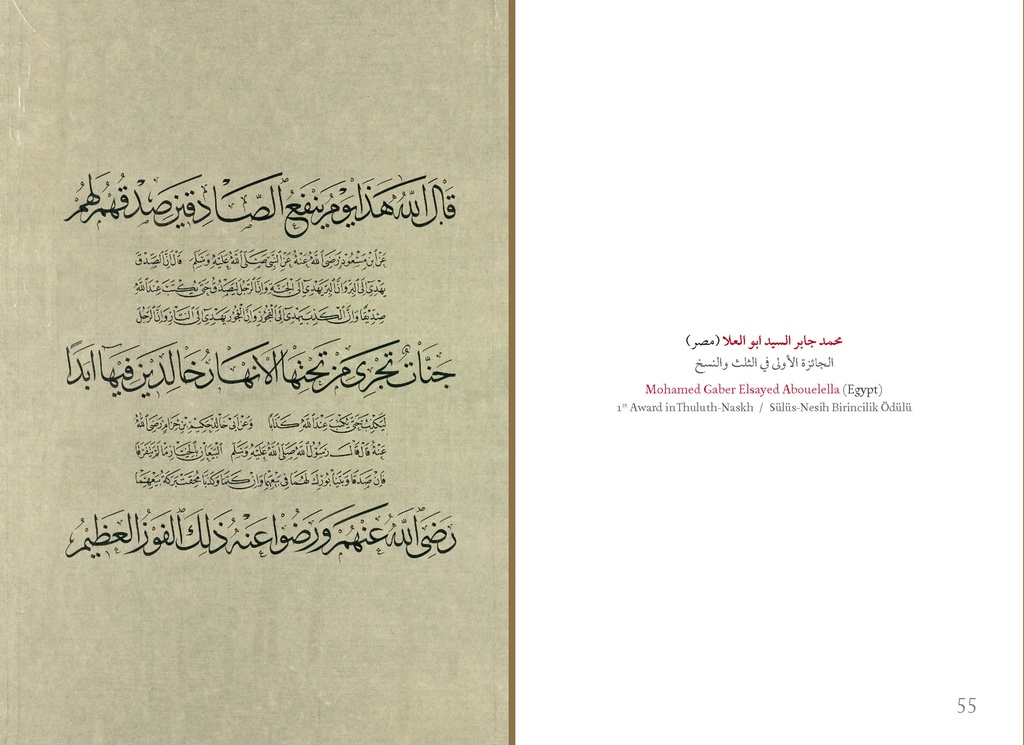 قَالَ اللّٰهُ هَذَا يَوْمُ يَنْفَعُ الصَّادِقِينَ صِدْقُهُمْ لَهُمْ
عَنِ ابْنِ مَسْعُودٍ رَضِيَ اللّٰهُ عَنْهُ عَنِ النَّبِيِّ صَلَّى اللّٰهُ عَلَيْهِ وَسَلَّمَ قَالَ إِنَّ الصِّدْقَ
يَهْدِي إِلَى الْبِرِّ وَإِنَّ الْبِرَّ يَهْدِي إِلَى الْجَنَّةِ وَإِنَّ الرَّجُلَ لَيَصْدُقُ حَتَّى يُكْتَبَ عِنْدَ اللّٰهِ
صِدِّيقًا وَإِنَّ الْكَذِبَ يَهْدِي إِلَى الْفُجُورِ وَإِنَّ الْفُجُورَ يَهْدِي إِلَى النَّارِ وَإِنَّ الرَّجُلَ
جَنَّاتٌ تَجْرِي مِنْ تَحْتِهَا الْأَنْهَارُ خَالِدِينَ فِيهَا أَبَدًا
لَيَكْذِبُ حَتَّى يُكْتَبَ عِنْدَ اللّٰهِ كَذَّابًا وَعَنْ أَبِي خَالِدٍ حَكِيمِ بْنِ حِزَامٍ رَضِيَ اللّٰهُ
عَنْهُ قَالَ قَالَ رَسُولُ اللّٰهِ صَلَّى اللّٰهُ عَلَيْهِ وَسَلَّمَ الْبَيِّعَانِ بِالْخِيَارِ مَا لَمْ يَتَفَرَّقَا
فَإِنْ صَدَقَا وَبَيَّنَا بُورِكَ لَهُمَا فِي بَيْعِهِمَا وَإِنْ كَتَمَا وَكَذَبَا مُحِقَتْ بَرَكَةُ بَيْعِهِمَا
رَضِيَ اللّٰهُ عَنْهُمْ وَرَضُوا عَنْهُ ذَلِكَ الْفَوْزُ الْعَظِيمُ
محمد جابر السيد ابو العلا (مصر)
الجائزة الأولى في الثلث والنسخ
Mohamed Gaber Elsayed Abouelella (Egypt)
1st Award in Thuluth-Naskh / Sülüs-Nesih Birincilik Ödülü
55